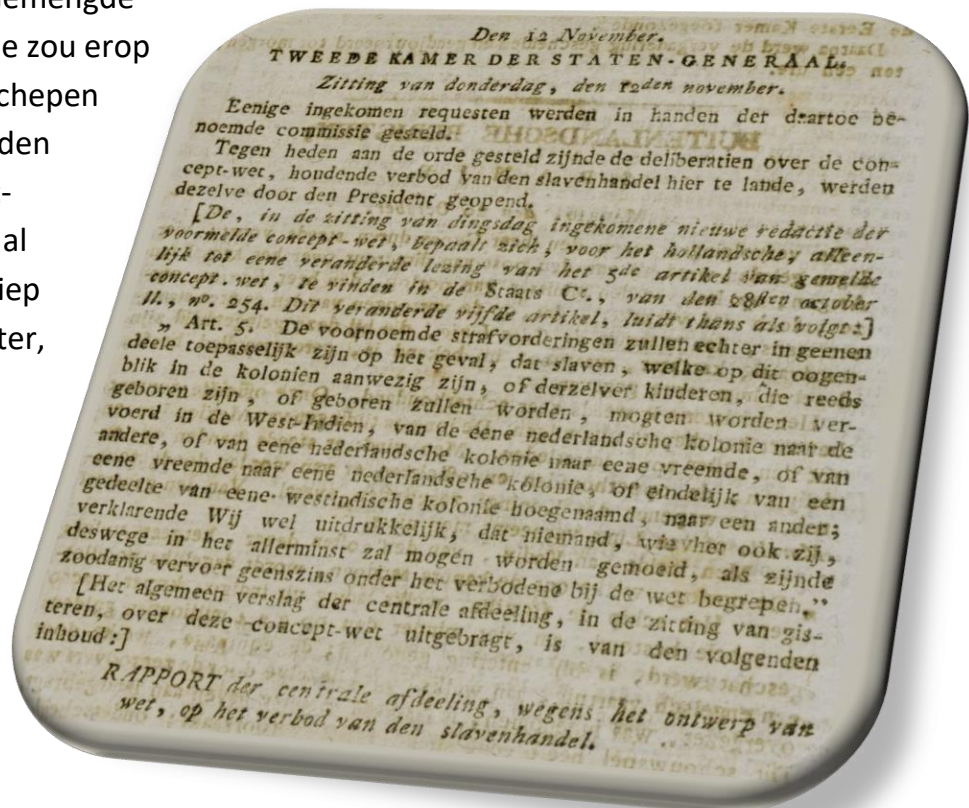 emengde
e zou erop
chepen
den
-
al
iep
ter,
de Eerste Kamer toegezonden.
Daarna werd de vergadering gescheiden
Den 12 November.
TWEEDE KAMER DER STATEN-GENERAAL.
Zitting van donderdag, den 12den november.
Eenige ingekomen requesten werden in handen der daartoe be-
noemde commissie gesteld.
Tegen heden aan de orde gesteld zijnde de deliberatien over de con-
cept-wet, houdende verbod van den slavenhandel hier te lande, werden
dezelve door den President geopend.
[De, in de zitting van dingsdag ingekomene nieuwe redactie der
voormelde concept-wet, bepaalt zich, voor het hollandsche, alleen-
lijk tot eene veranderde lezing van het 5de artikel van gemelde
concept-wet, te vinden in de Staats Ct., van den 28sten october
ll., no. 254. Dit veranderde vijfde artikel, luidt thans als volgt:]
„ Art. 5. De voornoemde strafvorderingen zullen echter in geenen
deele toepasselijk zijn op het geval, dat slaven, welke op dit oogen-
blik in de kolonien aanwezig zijn, of derzelver kinderen, die reeds
geboren zijn, of geboren zullen worden, mogten worden ver-
voerd in de West-Indien, van de eene nederlandsche kolonie naar de
andere, of van eene nederlandsche kolonie naar eene vreemde, of van
eene vreemde naar eene nederlandsche kolonie, of eindelijk van een
gedeelte van eene westindische kolonie hoegenaamd, naar een ander;
verklarende Wij wel uitdrukkelijk, dat niemand, wie het ook zij,
deswege in het allerminst zal mogen worden gemoeid, als zijnde
zoodanig vervoer geenszins onder het verbodene bij de wet begrepen.”
[Het algemeen verslag der centrale afdeeling, in de zitting van gis-
teren, over deze concept-wet uitgebragt, is van den volgenden
inhoud:]
RAPPORT der centrale afdeeling, wegens het ontwerp van
wet, op het verbod van den slavenhandel.